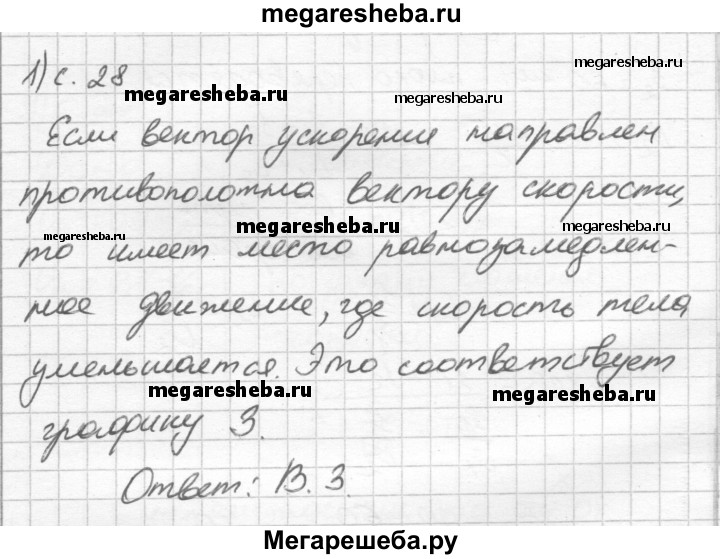 megaresheba.ru
1) с. 28
megaresheba.ru
megaresheba.ru
megaresheba.ru
Если вектор ускорение направлен
противополотна вектору скорости,
megaresheba.ru
megaresheba.ru
megaresheba.ru
то имеет место равнозамедлен-
ное движение, где скорость тела
уменьшается. Это соответствует
megaresheba.ru
megaresheba.ru
графику 3.
Ответ: В. 3.
Мегарешеба.ру